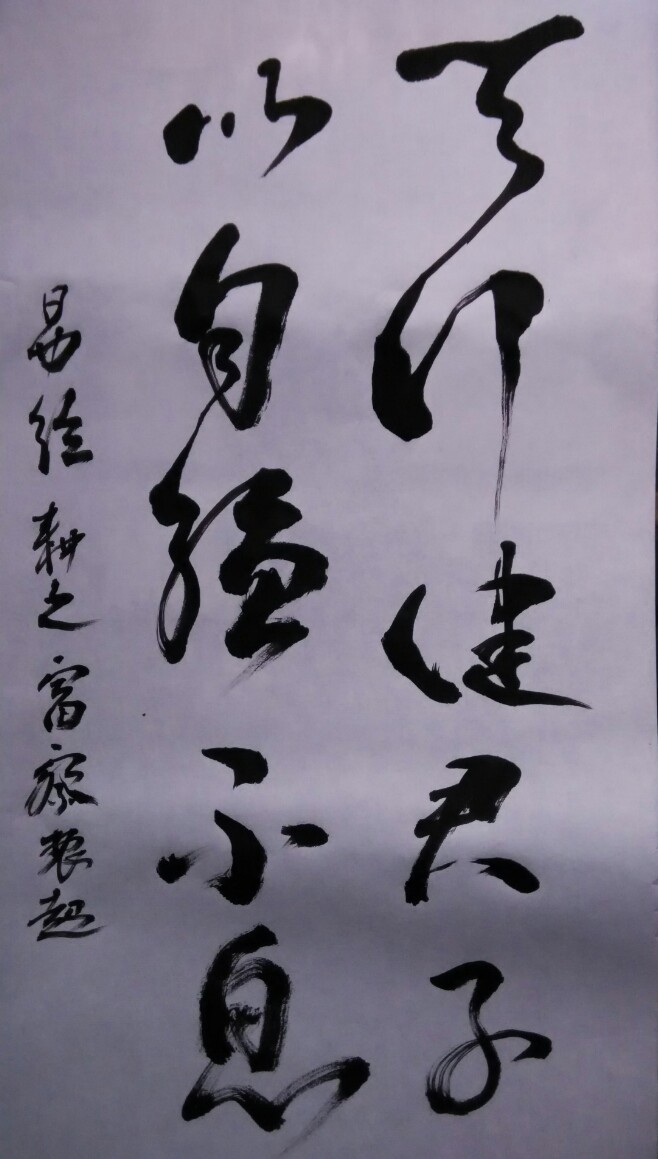 天行健君子
以自强不息
易经 耕之 富察振超